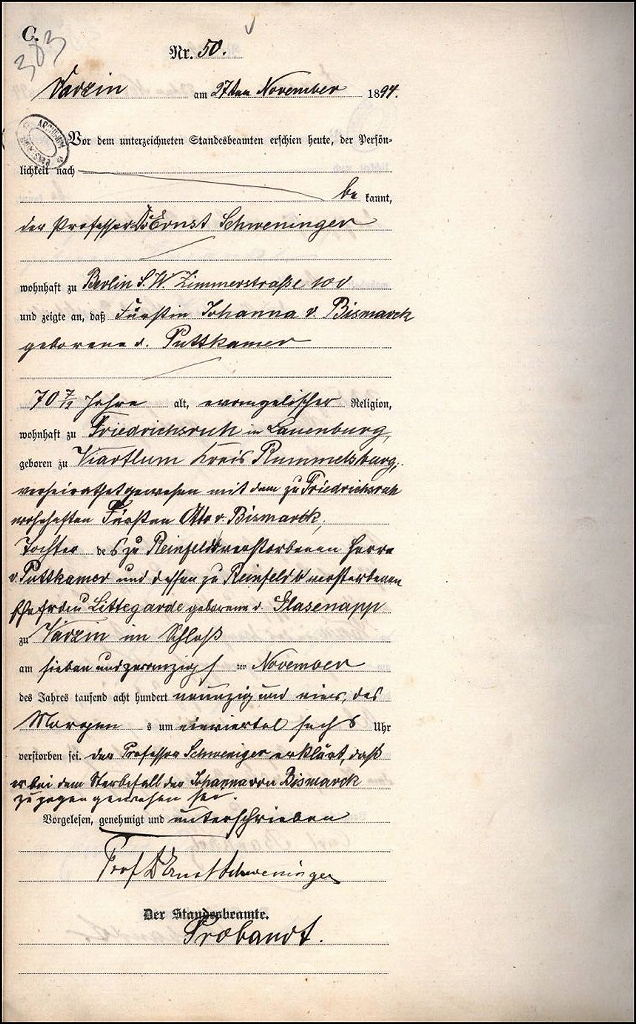 C.
383
Nr. 50.
Varzin am 27ten November 1894.
Vor dem unterzeichneten Standesbeamten erschien heute, der Persön-
lichkeit nach
be kannt,
der Professor Dr Ernst Schweninger
wohnhaft zu Berlin S.W. Zimmerstraße
und zeigte an, daß Fürstin Johanna v. Bismarck
geborene v. Puttkamer
70 7/12 Jahre alt, evangelischer Religion,
wohnhaft zu Friedrichsruh in Lauenburg,
geboren zu Viartlum Kreis Rummelsburg,
verheirathet gewesen mit dem zu Friedrichsruh
wohnhaften Fürsten Otto v. Bismarck,
Tochter des zu Reinfeld verstorbenen Herrn
v. Puttkamer und dessen zu Reinfeld verstorbenen
Ehefrau Littegarde geborene v. Glasenapp
zu Varzin im Schloß
am sieben und zwanzigsten November
des Jahres tausend acht hundert neunzig und vier, des
Morgens um einviertel sechs Uhr
verstorben sei. der Professor Schweniger erklärt, daß
er bei dem Sterbefall der Johanna von Bismarck
zugegen gewesen sei
Vorgelesen, genehmigt und unterschrieben
Prof Dr Ernst Schweninger
Der Standesbeamte.
Probandt.